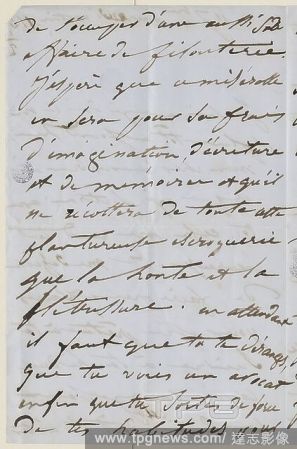 de t'occuper d'une aussi sale
affaire de filouterie.
J'espère que ce misérable
en sera pour ses frais
d'imagination, d'écriture
et de mémoires et qu'il
ne récoltera de toute cette
plantureuse escroquerie
que la honte et la
flétrissure. en attendant
il faut que tu te déranges,
que tu vois un avocat
enfin que tu sortes de
de tes habitudes
www.tpgnews.com / 達志影像